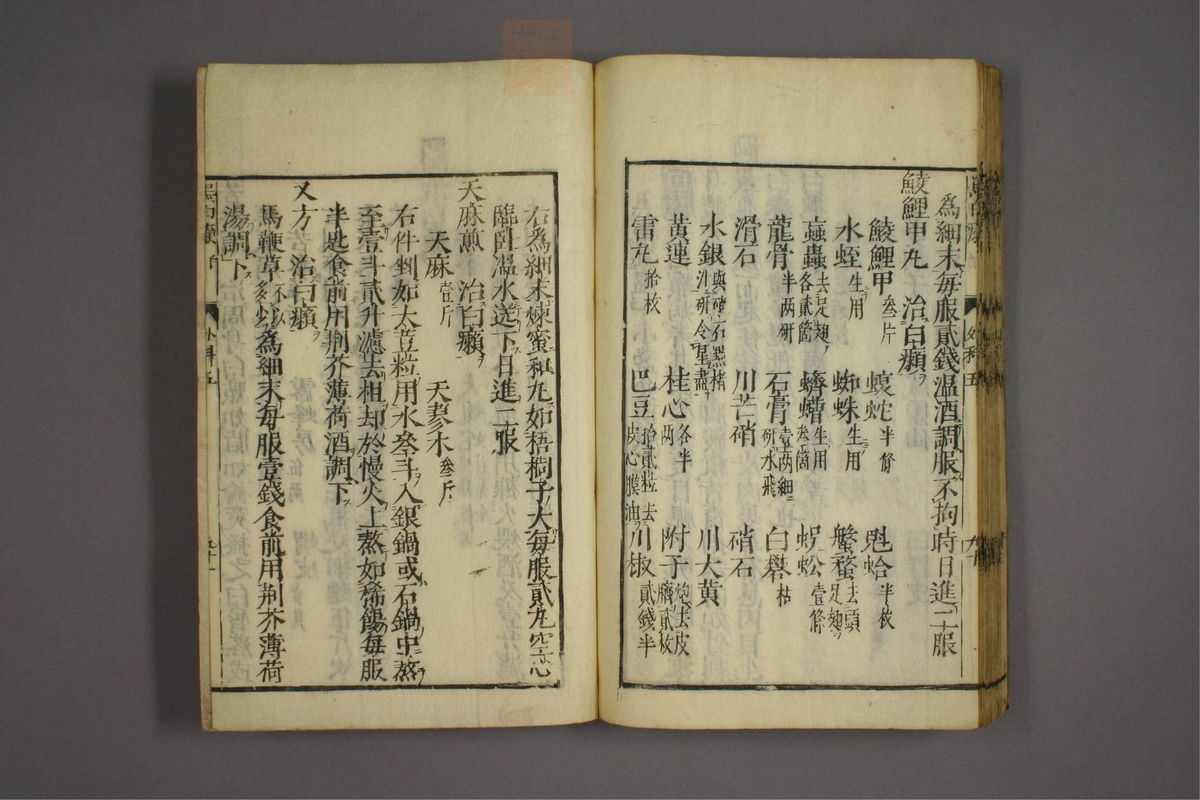 為細末每服貳錢温酒調服不拘時日進二服
鯪鯉甲丸　治白癩
鯪鯉甲叁片　蝮蛇半條　虺蛤半枚
水蛭生用　蜘蛛生用　盤蝥去頭足翅
蝱蟲去足翅各貳箇　蠐螬生用叁箇　蜈蚣壹條
龍骨半两研　石膏壹两細研水飛　白礬枯
滑石　川芒硝　硝石
水銀沙研令星盡　桂心各半两　川大黄
黄連　附子炮去皮臍貳枚
雷丸拾枚　巴豆拾貳粒去皮心膜油　川椒貳錢半
右為細末煉蜜和丸如梧桐子大每服貳丸空心
臨卧温水送下日進二服
天麻煎　治白癩
天麻壹斤　天蓼木叁斤
右件剉如大荳粒用水叁斗入銀鍋或石鍋中熬
至壹斗貳升濾去柤却於慢火上熬如稀餳每服
半匙食前用荆芥薄荷酒調下
又方　治白癩
馬鞭草不以多少為細末每服壹錢食前用荆芥薄荷
湯調下
外科五